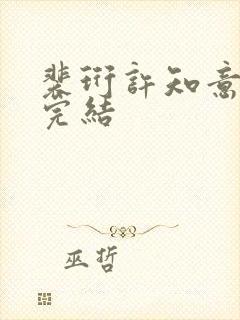 裴衍許知意
完結
巫哲